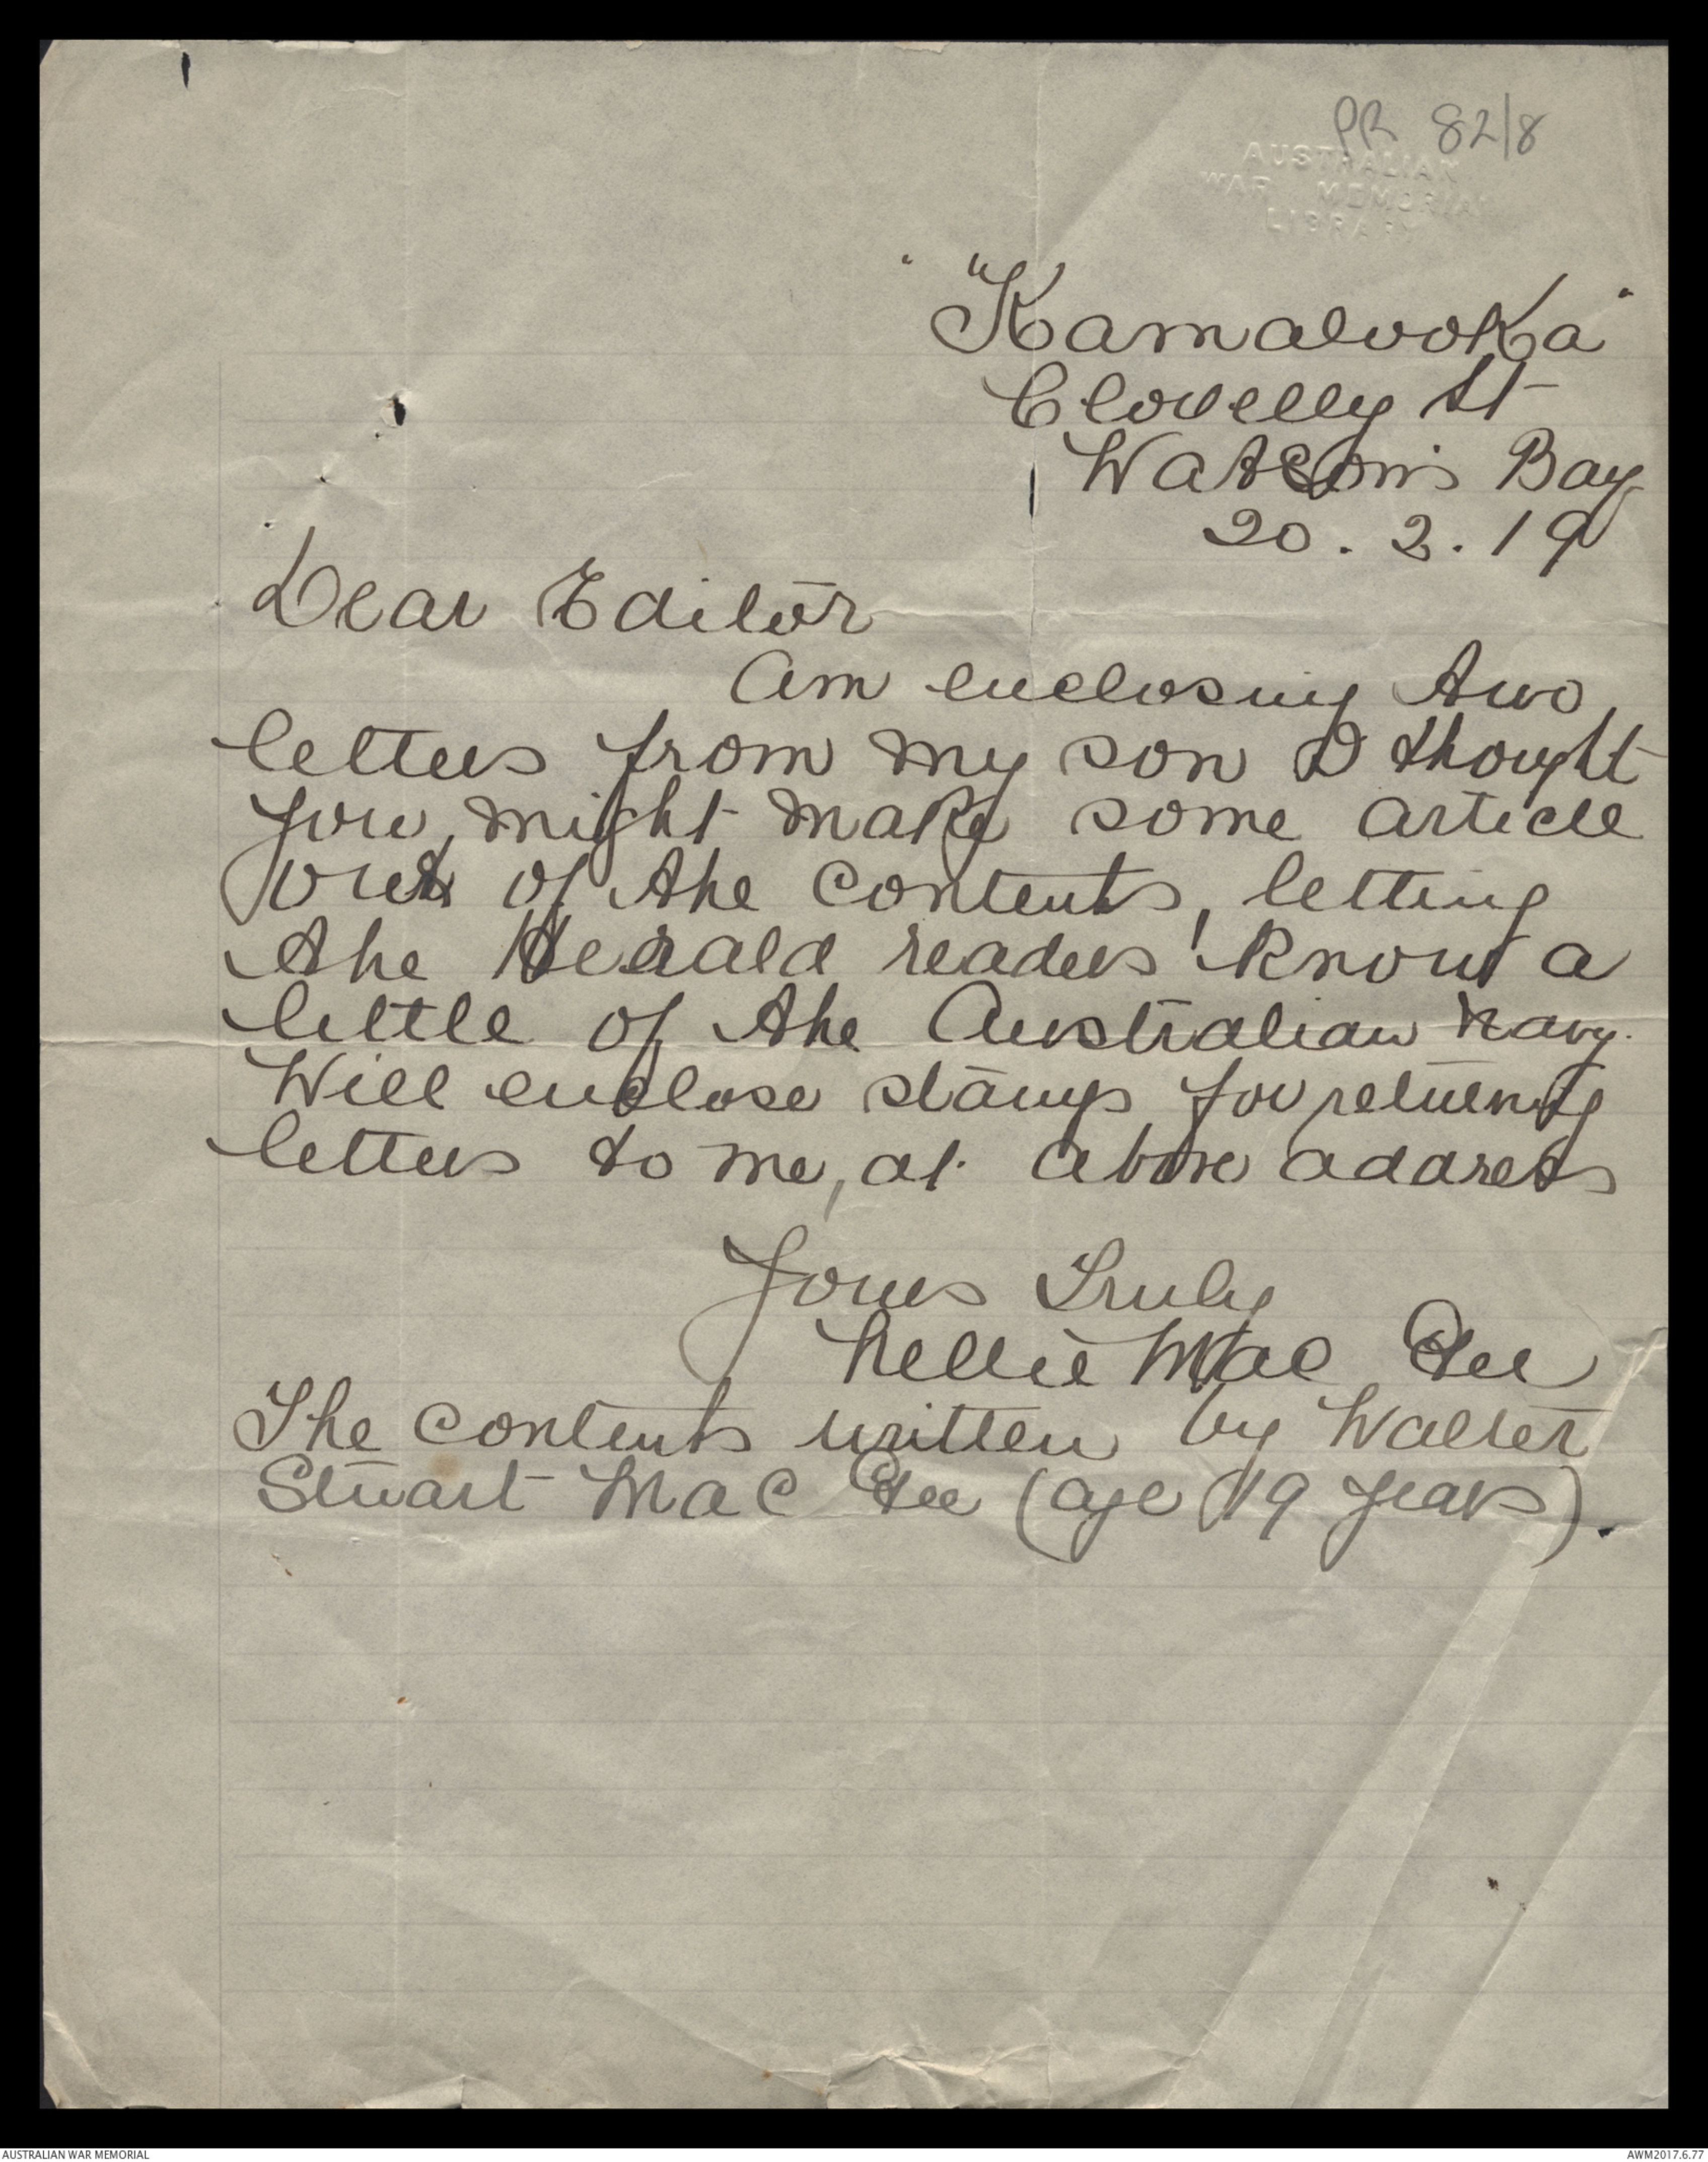 PR 82/8
AUSTRALIAN
WAR MEMORIAL
LIBRARY
"Kamalooka"
Clovelly St
Watson's Bay
20.2.19
Dear Editor
Am enclosing two
letters from my son I thought
you, might make some article
out of the contents, letting
the Herald readers know a
little of the Australian Navy.
Will enclose stamps for returning
letters to me, at above address
Yours Truly
Nellie Mac Gee
The contents written by Walter
Stuart Mac Gee (age 19 years).
AUSTRALIAN WAR MEMORIAL
AWM2017.6.77